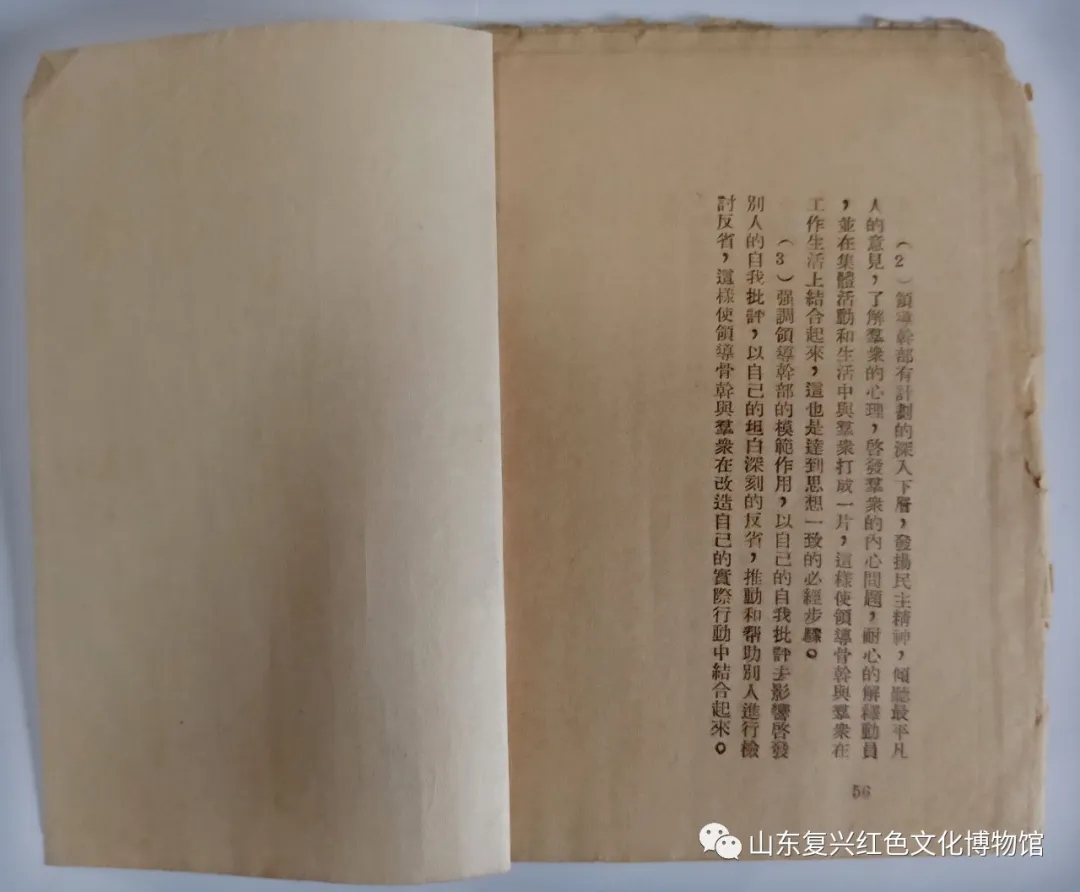 (2)領導幹部有計劃的深入下層，發揚民主精神，傾聽最平凡
人的意見，了解羣衆的心理，啓發羣衆的內心問題，耐心的解釋動員
，並在集體活動和生活中與羣衆打成一片，這樣使領導骨幹與羣衆在
工作生活上結合起來，這也是達到思想一致的必經步驟。
(3)强調領導幹部的模範作用，以自己的自我批評去影響啓發
別人的自我批評，以自己的坦白深刻的反省，推動和帮助別人進行檢
討反省，這樣使領導骨幹與羣衆在改造自己的實際行動中結合起來。
56
山东复兴红色文化博物馆